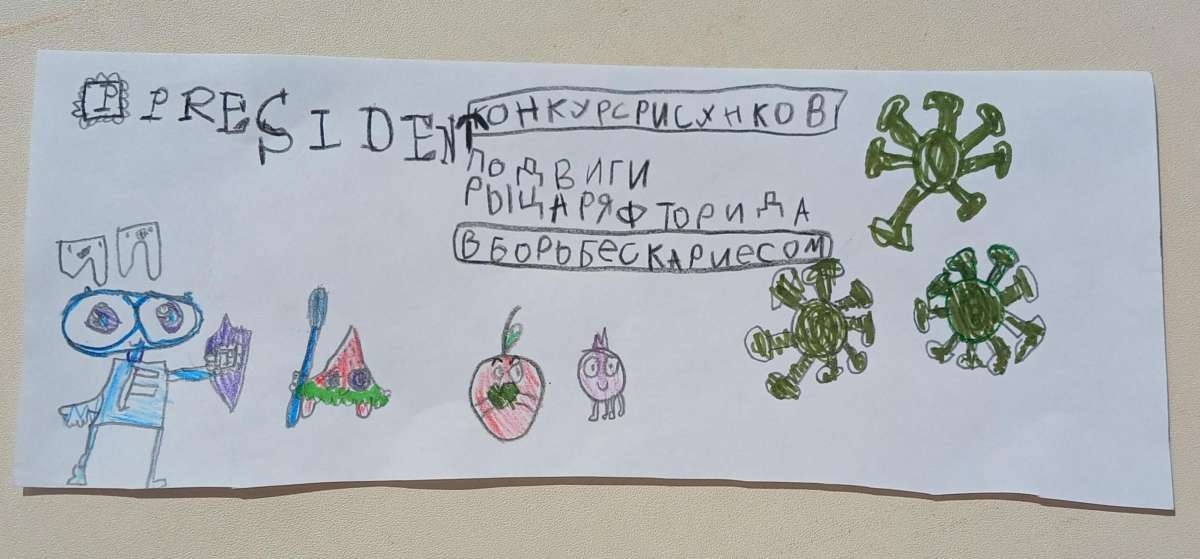 P PRESIDENT
КОНКУРС РИСУНКОВ
ПОДВИГИ
РЫЦАРЯ ФТОРИДА
В БОРЬБЕ С КАРИЕСОМ
F